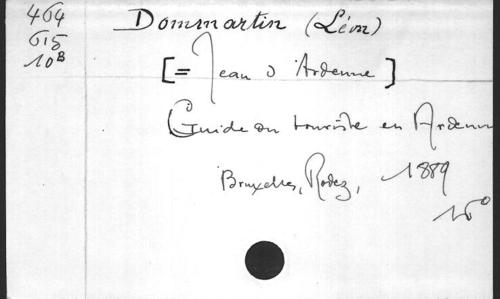 464
615
10B
Dommartin (Léon)
[= Jean d'Ardenne]
Guide du touriste en Ardenne
Bruxelles, Rozez, 1889
16°